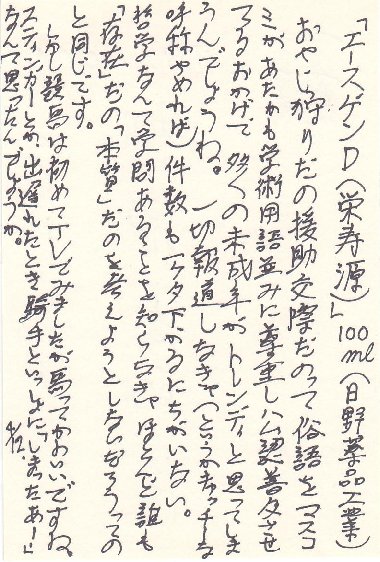 「エースゲンD(栄寿源)」100ml(日野薬品工業)
おやじ狩りだの援助交際だのって俗語をマスコ
ミがあたかも学術用語並みに尊重し公認普及させ
てるおかげで 多くの未成年がトレンディと思ってしま
うんでしょうね。一切報道しなきゃ(というかキャッチーな
呼称やめれば)件数も一ケタ下がるにちがいない。
哲学なんて学問あることを知らなきゃほとんど誰も
「存在」だの「本質」だのを考えようとしないだろうっての
と同じです。
しかし競馬は初めてTVでみましたが馬ってかわいいですね、
スティンガーとか、出遅れたとき騎手といっしょに「しまったあー!」
なんて思ったんでしょうか。